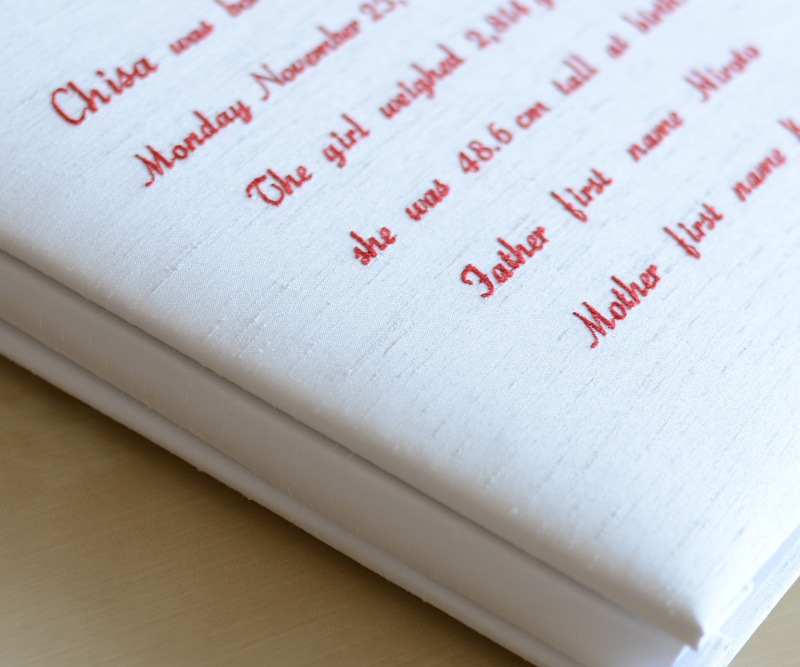 Chisa was
Monday November 23,
The girl weighed 2,914
she was 48.6 cm tall at birth
Father first name Hiroto
Mother first name